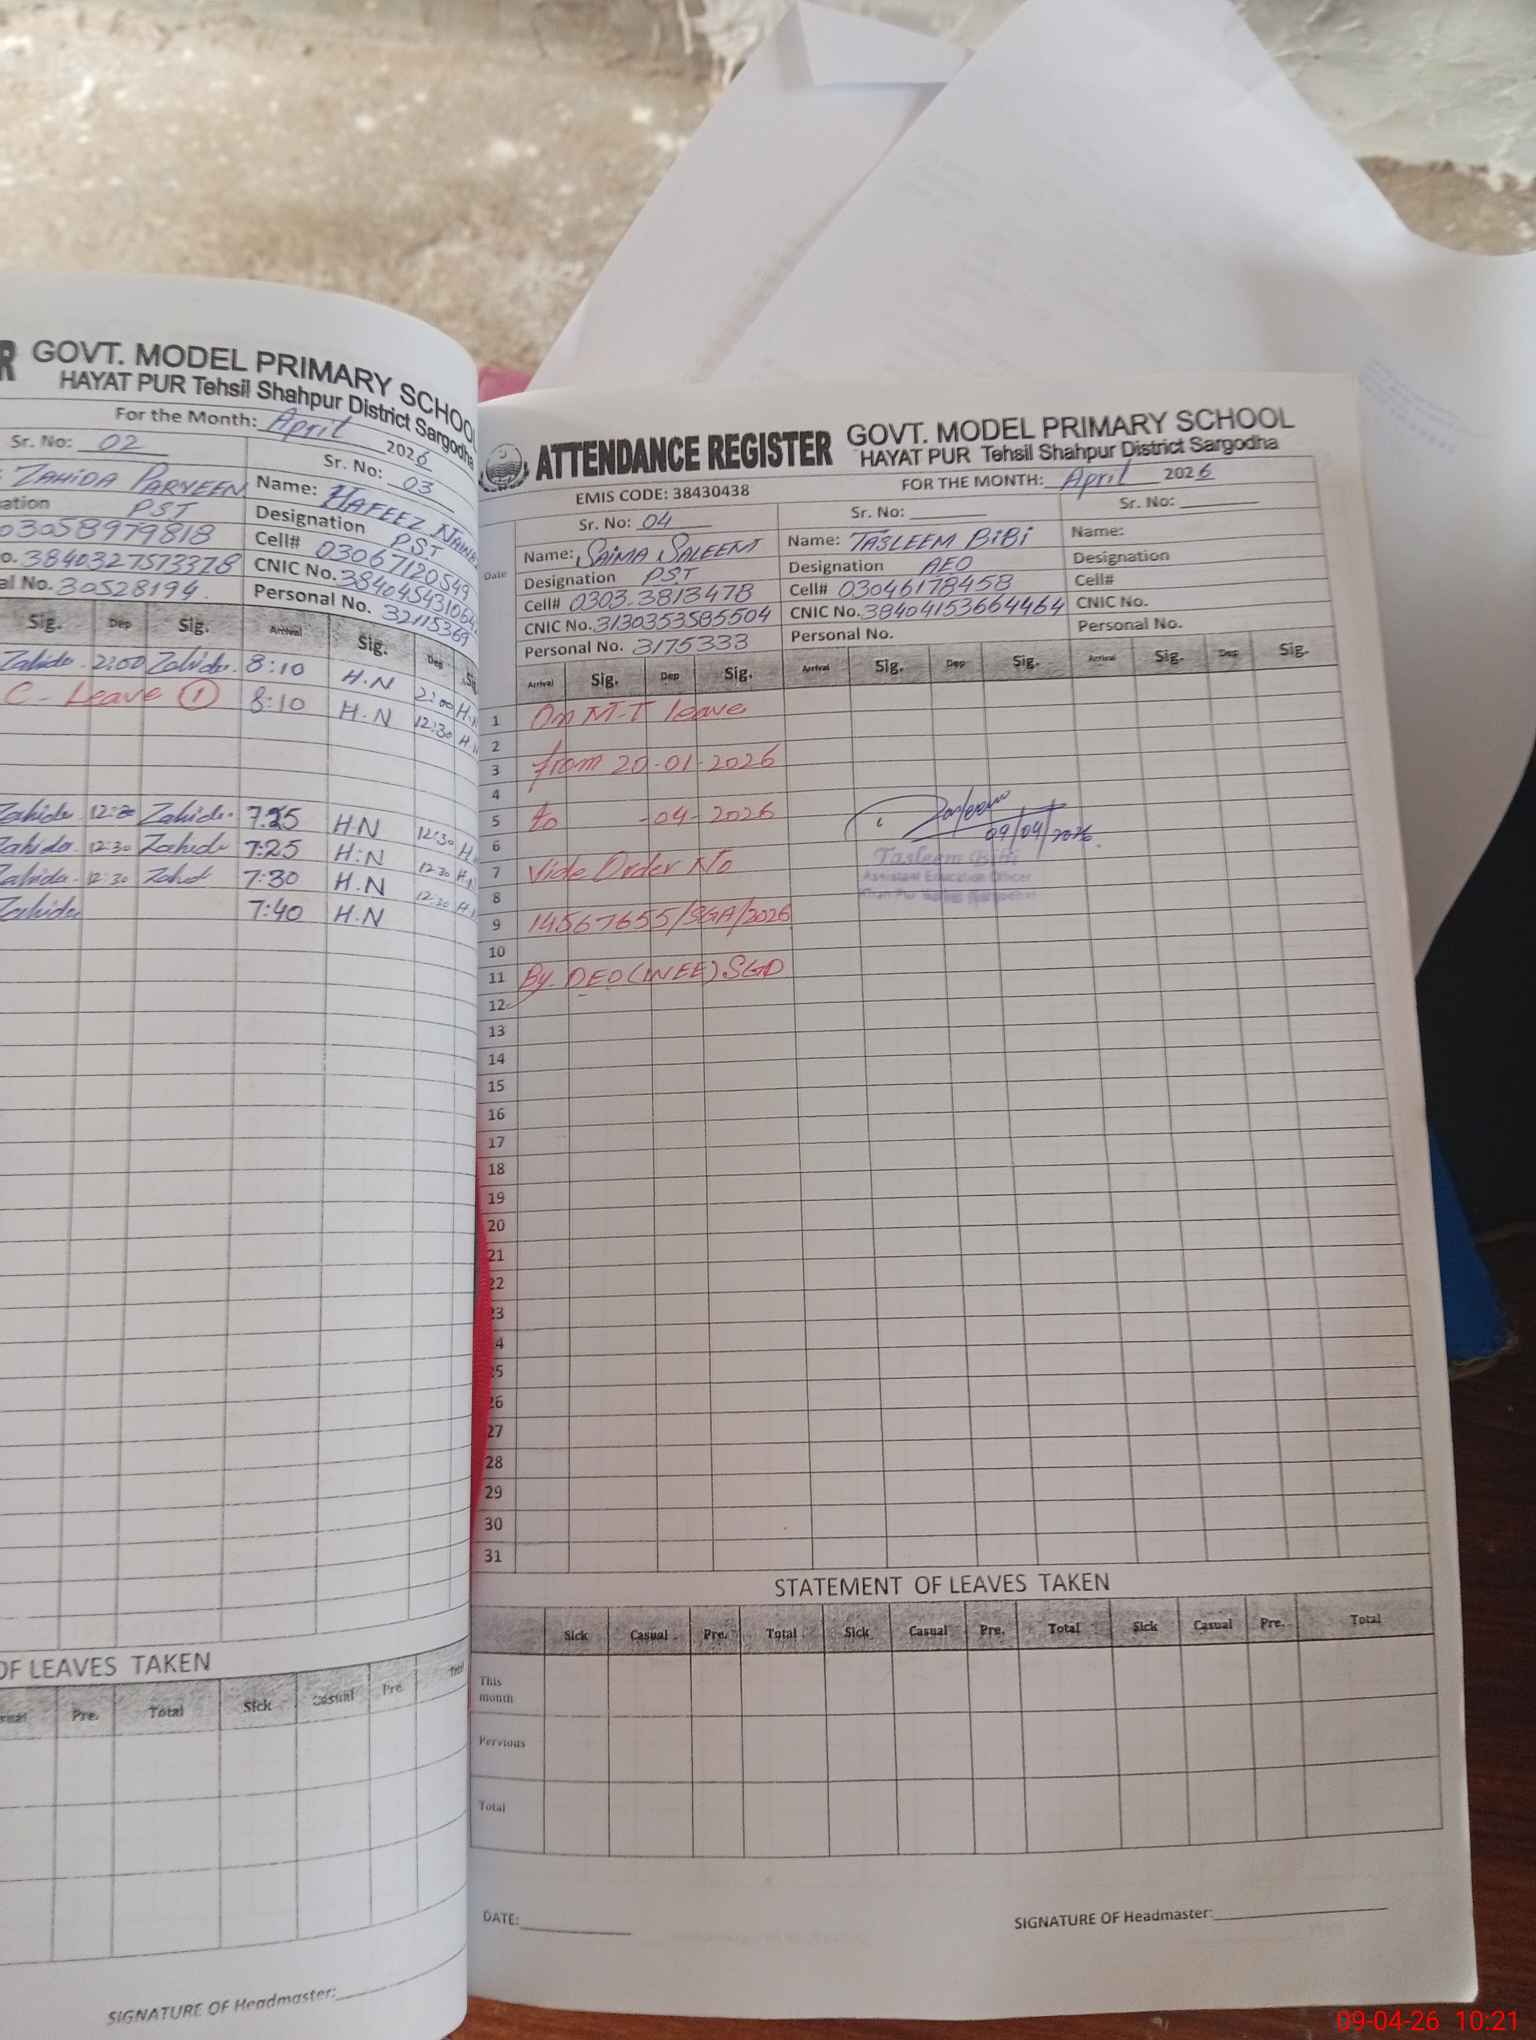 R GOVT. MODEL PRIMARY SCHOOL
HAYAT PUR Tehsil Shahpur District Sargodha
For the Month: April 2026
Sr. No: 02
Sr. No: 03
ZAHIDA PARVEEN
Name: HAFEEZ
ation PST
Designation PST
03058979818
Cell# 03067120549
o. 3840327573378
CNIC No.
al No. 30528194.
Personal No. 32115369
Sig. Dep Sig. Arrival Sig. Dep
Zahida 2:00 Zahida. 8:10 H.N 2:00
C - Leave 1 8:10 H.N 12:30
Zahida Zahida. 7:25 H.N 12:30
Zahida. 12:30 Zahida 7:25 H.N 12:30
Zahida. 12:30 7:30 H.N 12:30
Zahida 7:40 H.N
OF LEAVES TAKEN
Pre. Total Sick Casual Pre
SIGNATURE OF Headmaster:
ATTENDANCE REGISTER
GOVT. MODEL PRIMARY SCHOOL
HAYAT PUR Tehsil Shahpur District Sargodha
EMIS CODE: 38430438
FOR THE MONTH: April 2026
Date
Sr. No: 04
Name: SAIMA SALEEM
Designation PST
Cell# 0303.3813478
CNIC No. 3130353585504
Personal No. 3175333
Sr. No:
Name: TASLEEM BIBI
Designation AEO
Cell# 03046178458
CNIC No. 38404153664464
Personal No.
Sr. No:
Name:
Designation
Cell#
CNIC No.
Personal No.
Arrival Sig. Dep Sig. Arrival Sig. Dep Sig. Arrival Sig. Dep Sig.
1 On M-T leave
2
3 from 20-01-2026
4
5 to -04-2026
09/04/2026.
6
7 Vide Order No
Tasleem Bibi
Assistant Education Officer
8
9 14567655/SGA/2026
10
11 By. DEO(WEE).SGD
12
13
14
15
16
17
18
19
20
21
22
23
4
25
26
27
28
29
30
31
STATEMENT OF LEAVES TAKEN
Sick Casual Pre. Total Sick Casual Pre. Total Sick Casual Pre. Total
This
month
Pervious
Total
DATE:
SIGNATURE OF Headmaster:
09-04-26 10:21